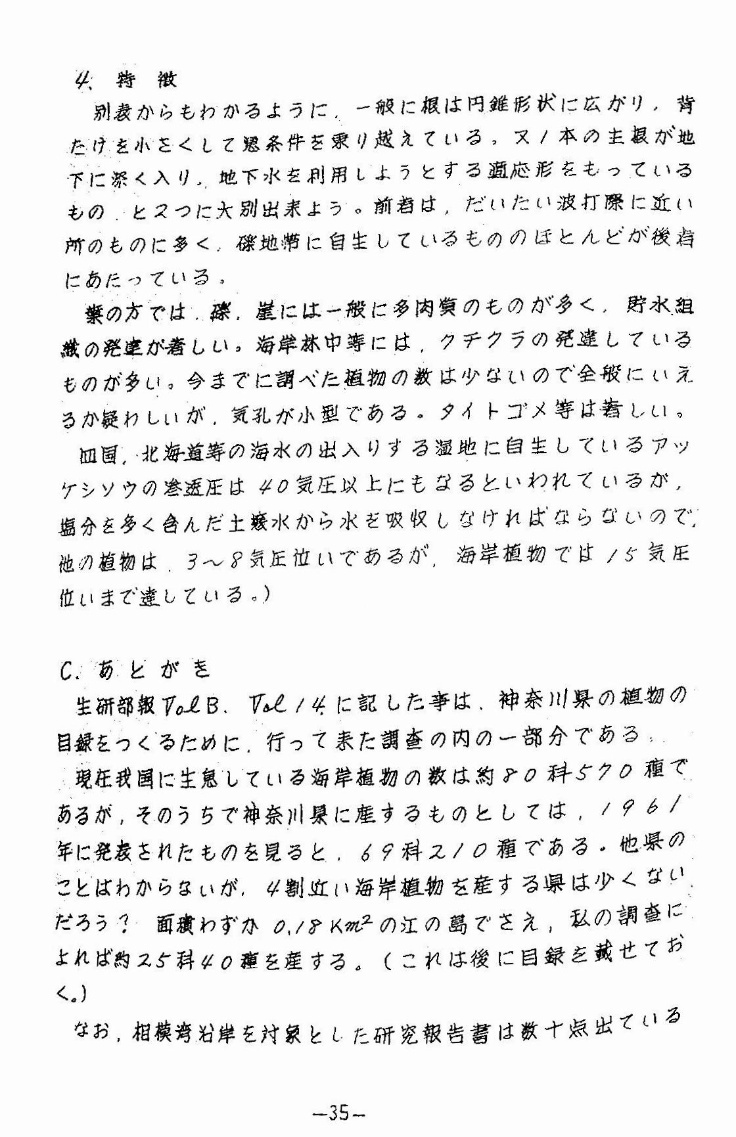 4. 特徴
別表からもわかるように、一般に根は円錐形状に広がり、背
たけを小さくして悪条件を乗り越えている。又1本の主根が地
下に深く入り、地下水を利用しようとする適応形をもっている
もの、と2つに大別出来よう。前者は、だいたい波打際に近い
所のものに多く、礫地帯に自生しているもののほとんどが後者
にあたっている。
葉の方では、礫、崖には一般に多肉質のものが多く、貯水組
織の発達が著しい。海岸林中等には、クチクラの発達している
ものが多い。今までに調べた植物の数は少ないので全般にいえ
るか疑わしいが、気孔が小型である。タイトゴメ等は著しい。
四国、北海道等の海水の出入りする湿地に自生しているアッ
ケシソウの浸透圧は40気圧以上にもなるといわれているが、
塩分を多く含んだ土壌水から水を吸収しなければならないので、
他の植物は、3～8気圧位いであるが、海岸植物では15気圧
位いまで達している。)
C. あとがき
生研部報Vol B、Vol 14.に記した事は、神奈川県の植物の
目録をつくるために、行って来た調査の内の一部分である。
現在我国に生息している海岸植物の数は約80科570種で
あるが、そのうちで神奈川県に産するものとしては、1961
年に発表されたものを見ると、69科210種である。他県の
ことはわからないが、4割近い海岸植物を産する県は少くない
だろう? 面積わずか0.18Km²の江の島でさえ、私の調査に
よれば約25科40種を産する。(これは後に目録を載せてお
く。)
なお、相模湾沿岸を対象とした研究報告書は数十点出ている
—35—